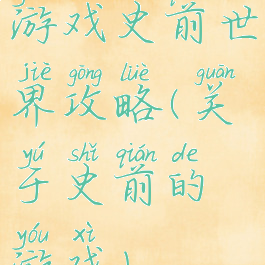 游戏史前世
jiè gōng lüè guān
界攻略(关
yú shǐ qián de
于史前的
yóu xì
游戏)